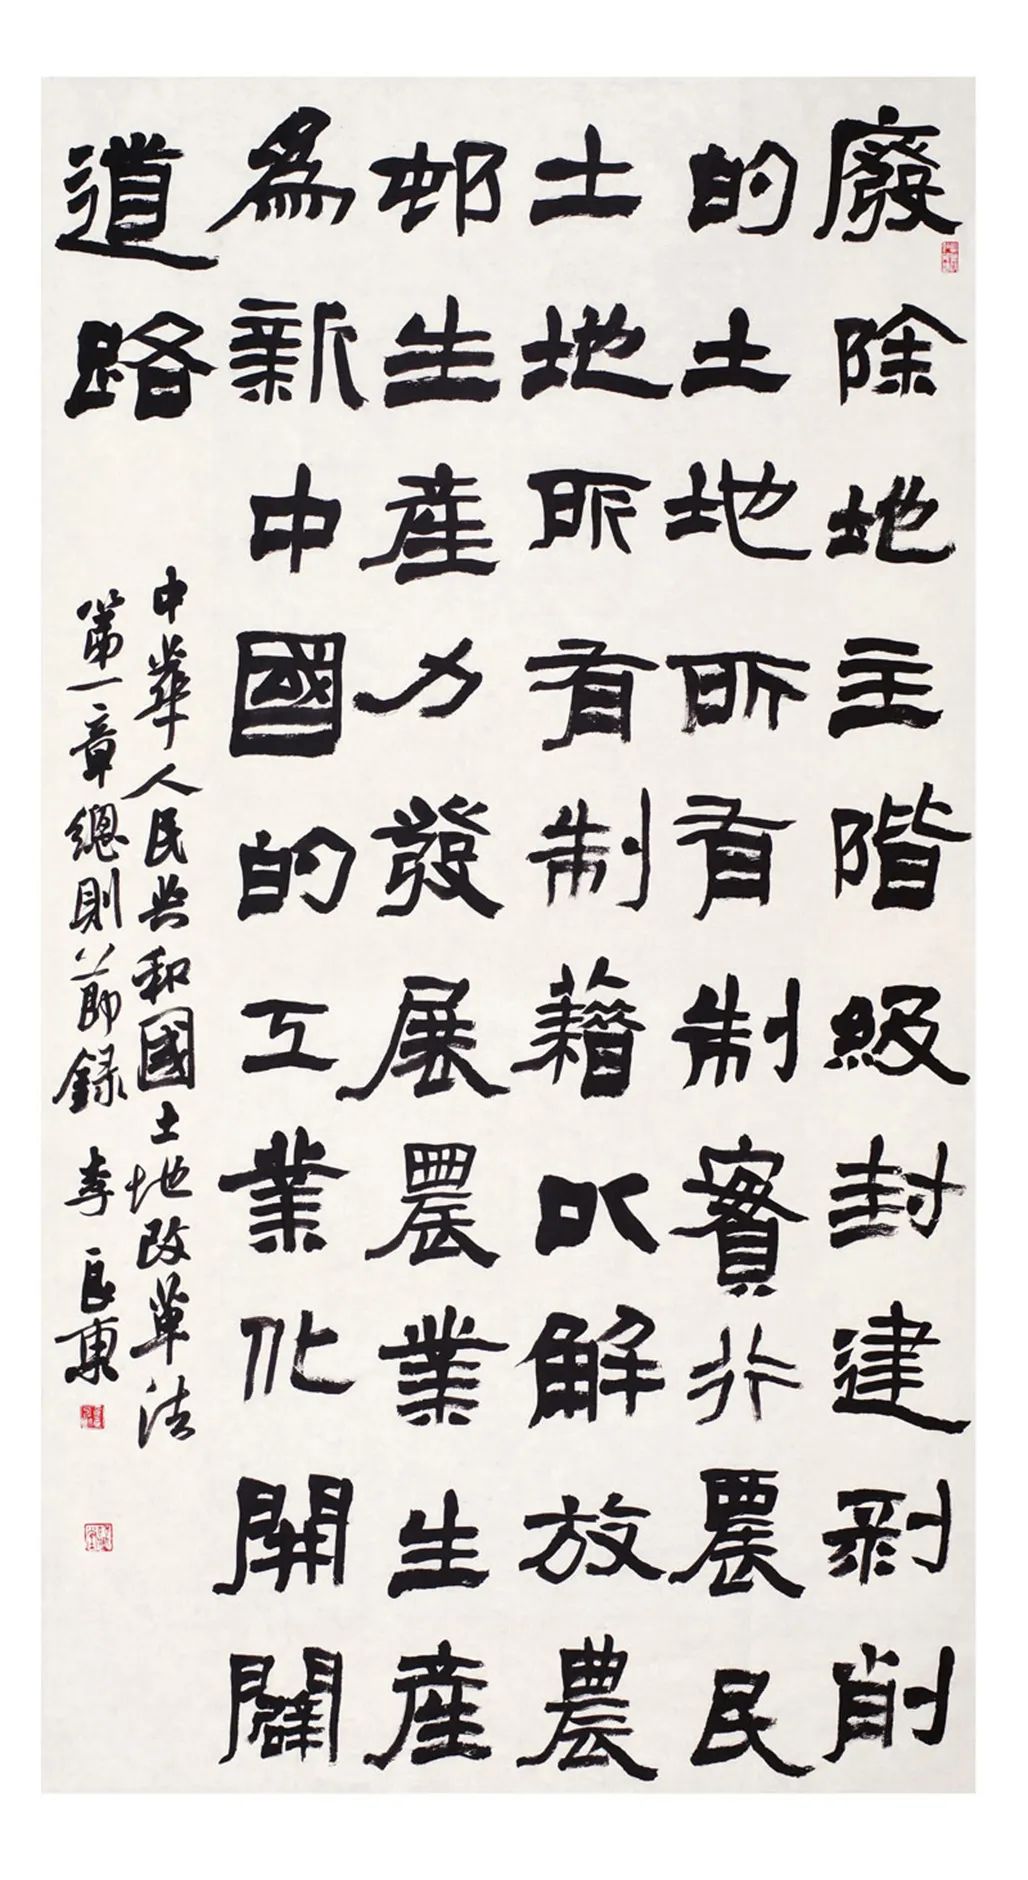 廢除地主階級封建剥削
的土地所有制實行農民
土地所有制藉以解放農
邨生産力發展農業生産
為新中國的工業化開闢
道路
中華人民共和國土地改革法
第一章總則節録 李良東